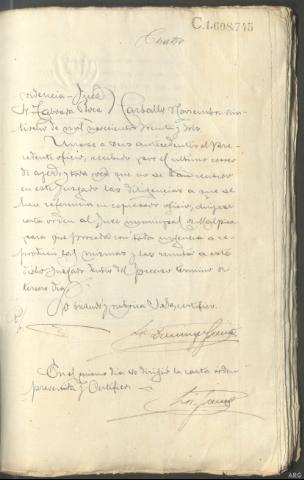 C.1.608.745
Cuatro
Providencia = Juez
Sr Taboada Roca } Carballo Noviembre vein
tiocho de mil novecientos treinta y dos.
Unase a sus antecedentes el pre-
cedente oficio, recibido por el ultimo correo
de ayer; y toda vez que no se han recibido
en este Juzgado las diligencias a que se
hace referencia en expresado oficio, dirijase
carta orden al Juez municipal de Malpica
para que proceda con toda urgencia a re-
producir las mismas y las remita a este
dicho Juzgado dentro del preciso termino de
tercero dia.
Lo mandó y rubrica S.Sª doy, certifico.
En el mismo dia se dirigió la carta orden
prevenida y Certifico.
ARG